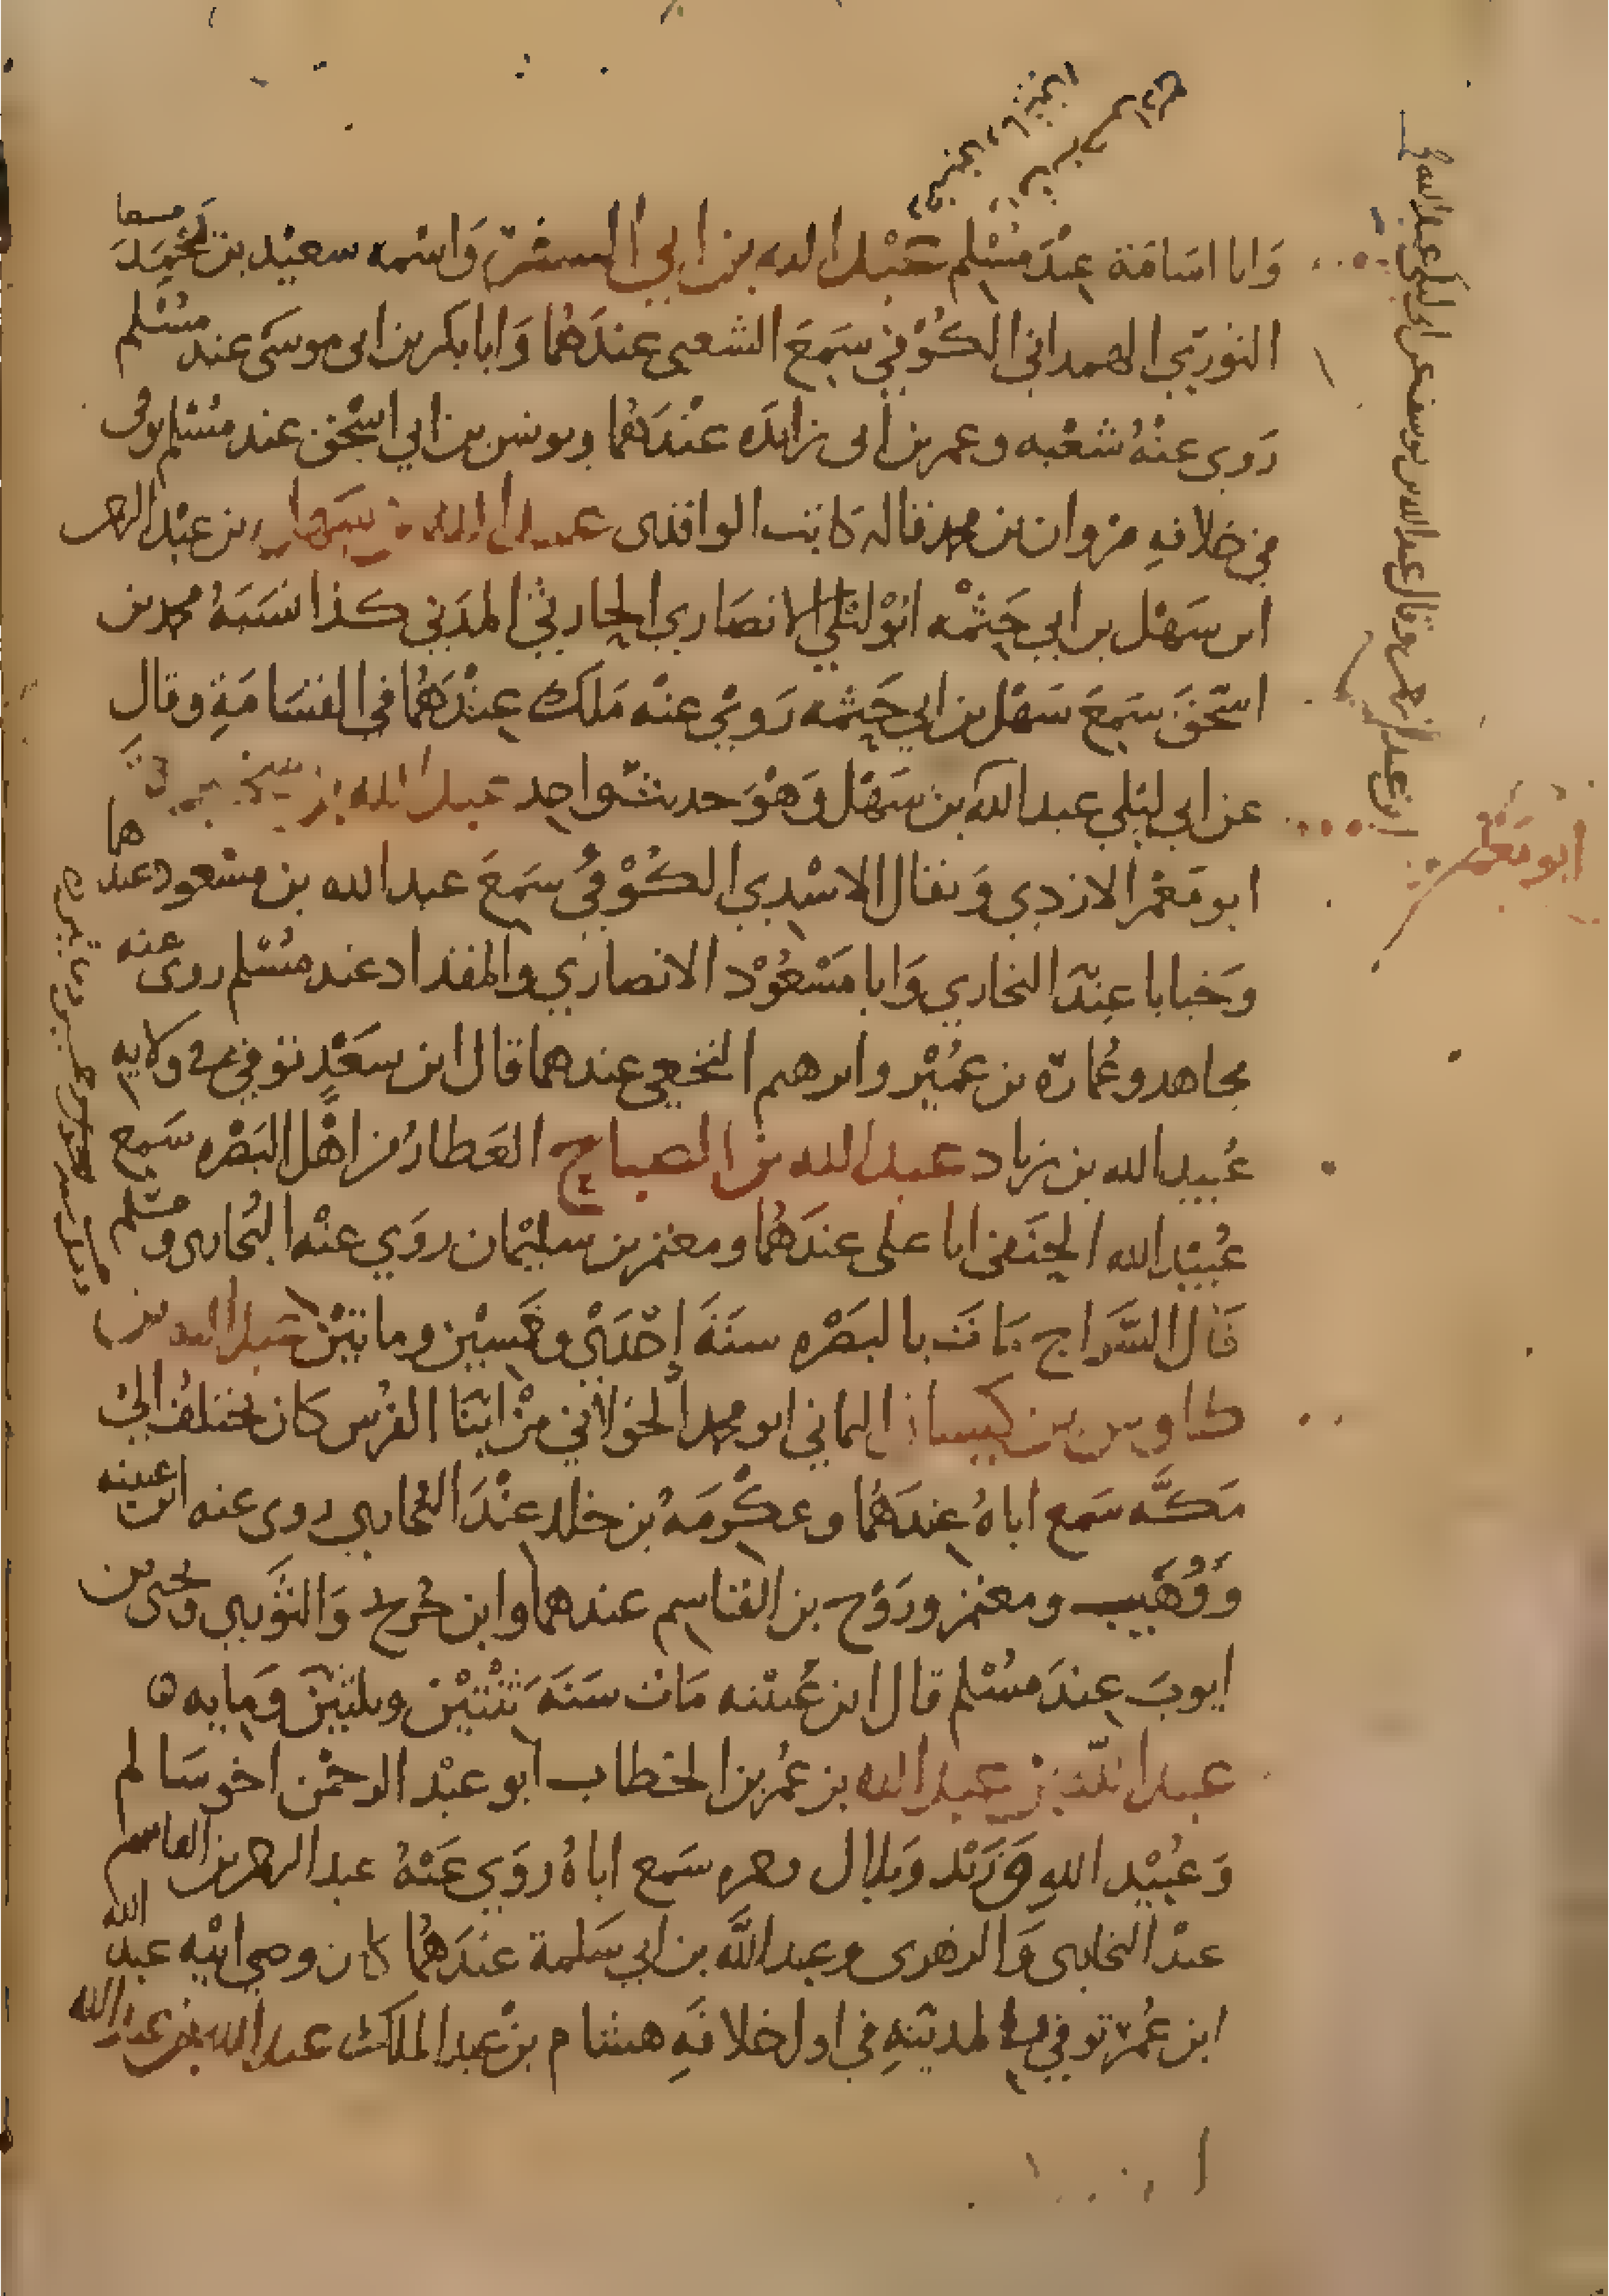 وَابا اسَامَة عِنْدَ مُسْلِم عَبْدا لله بن ابي السفر وَاسْمه سعيْد بن يُحْمَِد معا
الثورَيّ الهمدانيّ الكُوْفي سَمِعَ الشعبي عندَهُما وَابا بكر بن ابى موسَى عند مُسْلم
رَوى عَنْهُ شعْبه وعمر بن ابى زائدَه عنْدَهُما ويونس بن ابي اسْحٰق عند مُسْلم توفى
في خلافهِ مرْوان بن محمد قاله كاتب الواقدى عبدا لله بن سَهْل بن عبْد الرحمن
ابن سَهْل بن ابي حَثْمْه ابُوْ ليْلي الانصَاري الحارثيّ المدَني كذا نسَبَهُ محمد بن
اسْحٰقَ سَمِعَ سَهْل بن ابي حَثمه رَويْ عنْه مَلك عِنْدَهُما في القسَامَةِ وقال
عن ابي ليْلي عبد الله بن سَهْل وَهْوَ حديث واحِد عبدا لله بن سخبرة
ابو مَعْمَر الازدي وَيقال الاسْدِي الكُوْفيُ سَمِعَ عبد الله بن مسْعود عندهما
وَخبابا عِنْدَ البخاري وَابا مَسْعُوْد الانصاري والمقداد عند مسْلم روى عنه
مجاهد وعُمارَة بن عمُيْر وابرهيم النخعي عندهما قال ابن سَعْدٍ توفي في ولايه
عُبيد الله بن زياد عبدا لله بن الصباح العَطار من اهْل البَصْره سَمِع
عُبيْد الله الحنَفي ابا على عندَهُما ومعتمر بن سليْمان روَي عنْه البُخارى ومسلم
قَال السَّرَاج مَاتَ بالبَصْره سنَةَ إحْدَيْ وخَمسِيْن وماتيْن عبدا لله بن
طاوس بن كيسان اليماني ابو محمد الخوْلاني منْ ابْنَا الفرُس كان يختلفُ الي
مَكَّه سَمِع اباهُ عِندَهُما وعكْرمَهُ بن خالد عنْدَ البُخاري روى عنه ابن عيينه
وَوُهَيْب ومعتمر ورَوْح بن القاسِم عندهما وابن جُريج وَالثوْري ويحيى بن
ايوبَ عِندَ مسُلم قال ابن عُيينه مَات سَنَةَ ثِنْتيْن وثلثيْنَ وَمِايه ه
عبدا لله بن عبدا لله بن عُمر بن الخطاب ابو عبْد الرحمٰن اخو سَالم
وَعُبيْد اللهِ وَزَيْد وَبلال وحمزه سَمع اباهُ روَي عَنْهُ عبد الرحمن بن القاسم
عنْد البخارى وَالزهرى وعبد اللَّه بن ابي سَلمة عندَهُما كان وصي ابيْه عبد الله
ابن عُمَر توفي بالمدينهِ في اول خلافَهِ هشام بن عبد الملك عبدا لله بن عبدا لله
ابو مَعْمَر